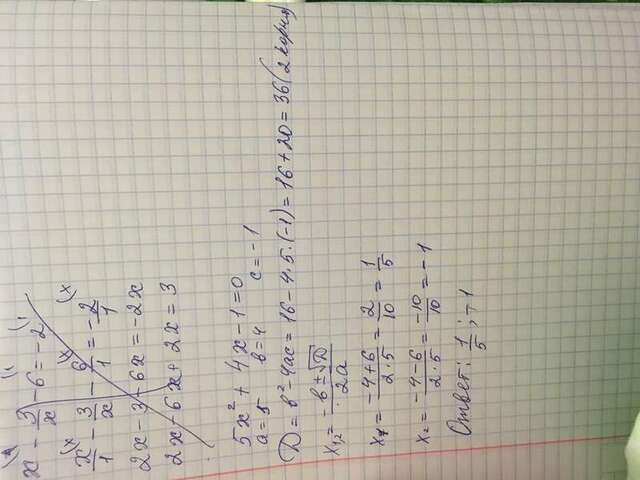 x - 3/x - 6 = -2
x/1 - 3/x - 6/1 = -2/1
2x - 3 - 6x = -2x
2x - 6x + 2x = 3
5x² + 4x - 1 = 0
a = 5 в = 4 c = -1
D = в² - 4ac = 16 - 4·5·(-1) = 16 + 20 = 36 (2 корня)
x₁,₂ = -в ± √D / 2a
x₁ = -4+6 / 2·5 = 2/10 = 1/5
x₂ = -4-6 / 2·5 = -10/10 = -1
Ответ: 1/5 ; -1